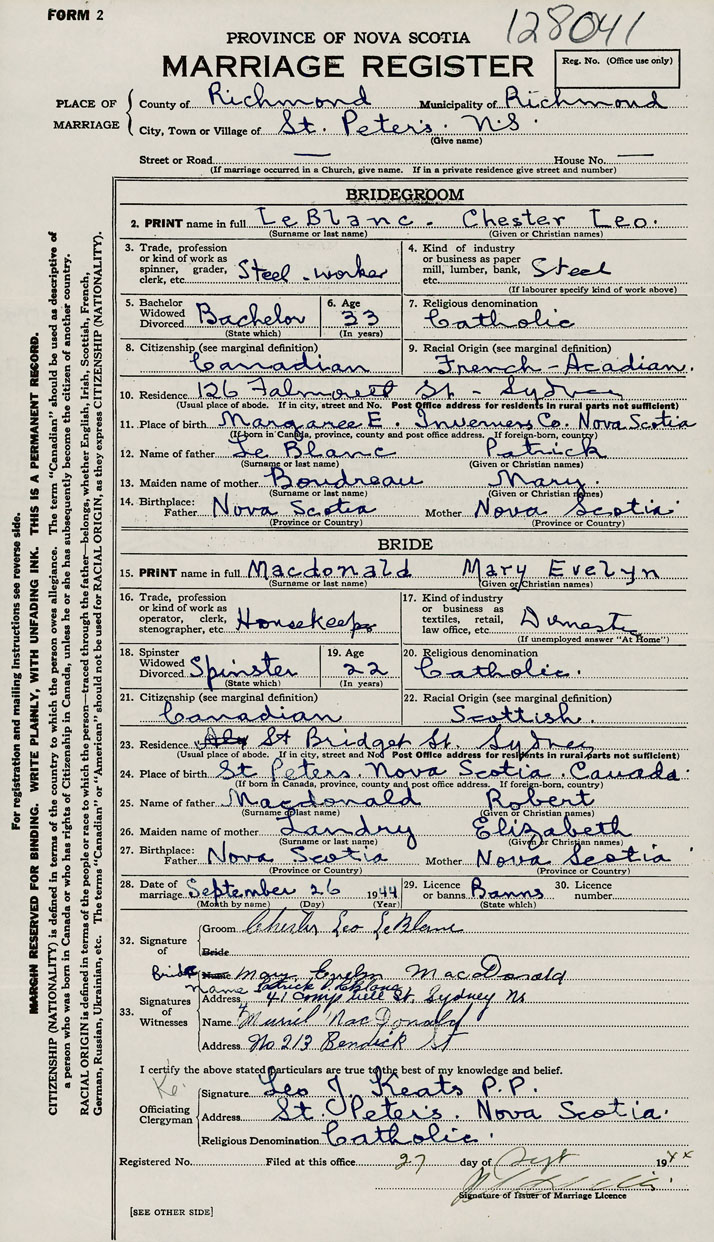 FORM 2
128041
PROVINCE OF NOVA SCOTIA
MARRIAGE REGISTER
Reg. No. (Office use only)
PLACE OF MARRIAGE
County of Richmond Municipality of Richmond
City, Town or Village of St. Peter's. N.S.
(Give name)
Street or Road — House No. —
(If marriage occurred in a Church, give name. If in a private residence give street and number)
BRIDEGROOM
2. PRINT name in full LeBlanc. Chester Leo.
(Surname or last name) (Given or Christian names)
3. Trade, profession or kind of work as spinner, grader, clerk, etc. Steel-worker
4. Kind of industry or business as paper mill, lumber, bank, etc. Steel
(If labourer specify kind of work above)
5. Bachelor Widowed Divorced Bachelor
(State which)
6. Age 33
(In years)
7. Religious denomination Catholic
8. Citizenship (see marginal definition) Canadian
9. Racial Origin (see marginal definition) French-Acadian.
10. Residence 126 St - Sydney
(Usual place of abode. If in city, street and No. Post Office address for residents in rural parts not sufficient)
11. Place of birth Margaree E. Inverness Co. Nova Scotia
(If born in Canada, province, county and post office address. If foreign-born, country)
12. Name of father Le Blanc Patrick
(Surname or last name) (Given or Christian names)
13. Maiden name of mother Boudreau Mary.
(Surname or last name) (Given or Christian names)
14. Birthplace: Father Nova Scotia Mother Nova Scotia
(Province or Country) (Province or Country)
BRIDE
15. PRINT name in full Macdonald Mary Evelyn
(Surname or last name) (Given or Christian names)
16. Trade, profession or kind of work as operator, clerk, stenographer, etc. Housekeeper
17. Kind of industry or business as textiles, retail, law office, etc. Domestic
(If unemployed answer "At Home")
18. Spinster Widowed Divorced Spinster
(State which)
19. Age 22
(In years)
20. Religious denomination Catholic.
21. Citizenship (see marginal definition) Canadian
22. Racial Origin (see marginal definition) Scottish.
23. Residence St Bridget St. Sydney
(Usual place of abode. If in city, street and No. Post Office address for residents in rural parts not sufficient)
24. Place of birth St Peters. Nova Scotia. Canada.
(If born in Canada, province, county and post office address. If foreign-born, country)
25. Name of father Macdonald Robert
(Surname or last name) (Given or Christian names)
26. Maiden name of mother Landry Elizabeth
(Surname or last name) (Given or Christian names)
27. Birthplace: Father Nova Scotia Mother Nova Scotia
(Province or Country) (Province or Country)
28. Date of marriage September 26 1944
(Month by name) (Day) (Year)
29. Licence or banns Banns
(State which)
30. Licence number
32. Signature of
Groom Chester Leo LeBlanc
Bride
Bride Name Mary Evelyn MacDonald
33. Signatures of Witnesses
Name Patrick
Address 41 Campbell St. Sydney NS
Name Muriel MacDonald
Address No 213 St
I certify the above stated particulars are true to the best of my knowledge and belief.
Officiating Clergyman
Signature Leo J. Keats P.P.
Address St. Peter's. Nova Scotia.
Religious Denomination Catholic.
Registered No. Filed at this office 27 day of Sept 1944
Signature of Issuer of Marriage Licence
[SEE OTHER SIDE]
For registration and mailing instructions see reverse side.
MARGIN RESERVED FOR BINDING. WRITE PLAINLY, WITH UNFADING INK. THIS IS A PERMANENT RECORD.
CITIZENSHIP (NATIONALITY) is defined in terms of the country to which the person owes allegiance. The term "Canadian" should be used as descriptive of
a person who was born in Canada or who has rights of Citizenship in Canada, unless he or she has subsequently become the citizen of another country.
RACIAL ORIGIN is defined in terms of the people or race to which the person—traced through the father—belongs, whether English, Irish, Scottish, French,
German, Russian, Ukrainian, etc. The terms "Canadian" or "American" should not be used for RACIAL ORIGIN, as they express CITIZENSHIP (NATIONALITY).